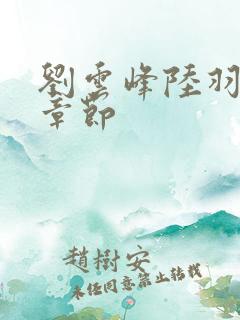 劉雲峰陸羽
章節
趙樹安
未經同意禁止轉載